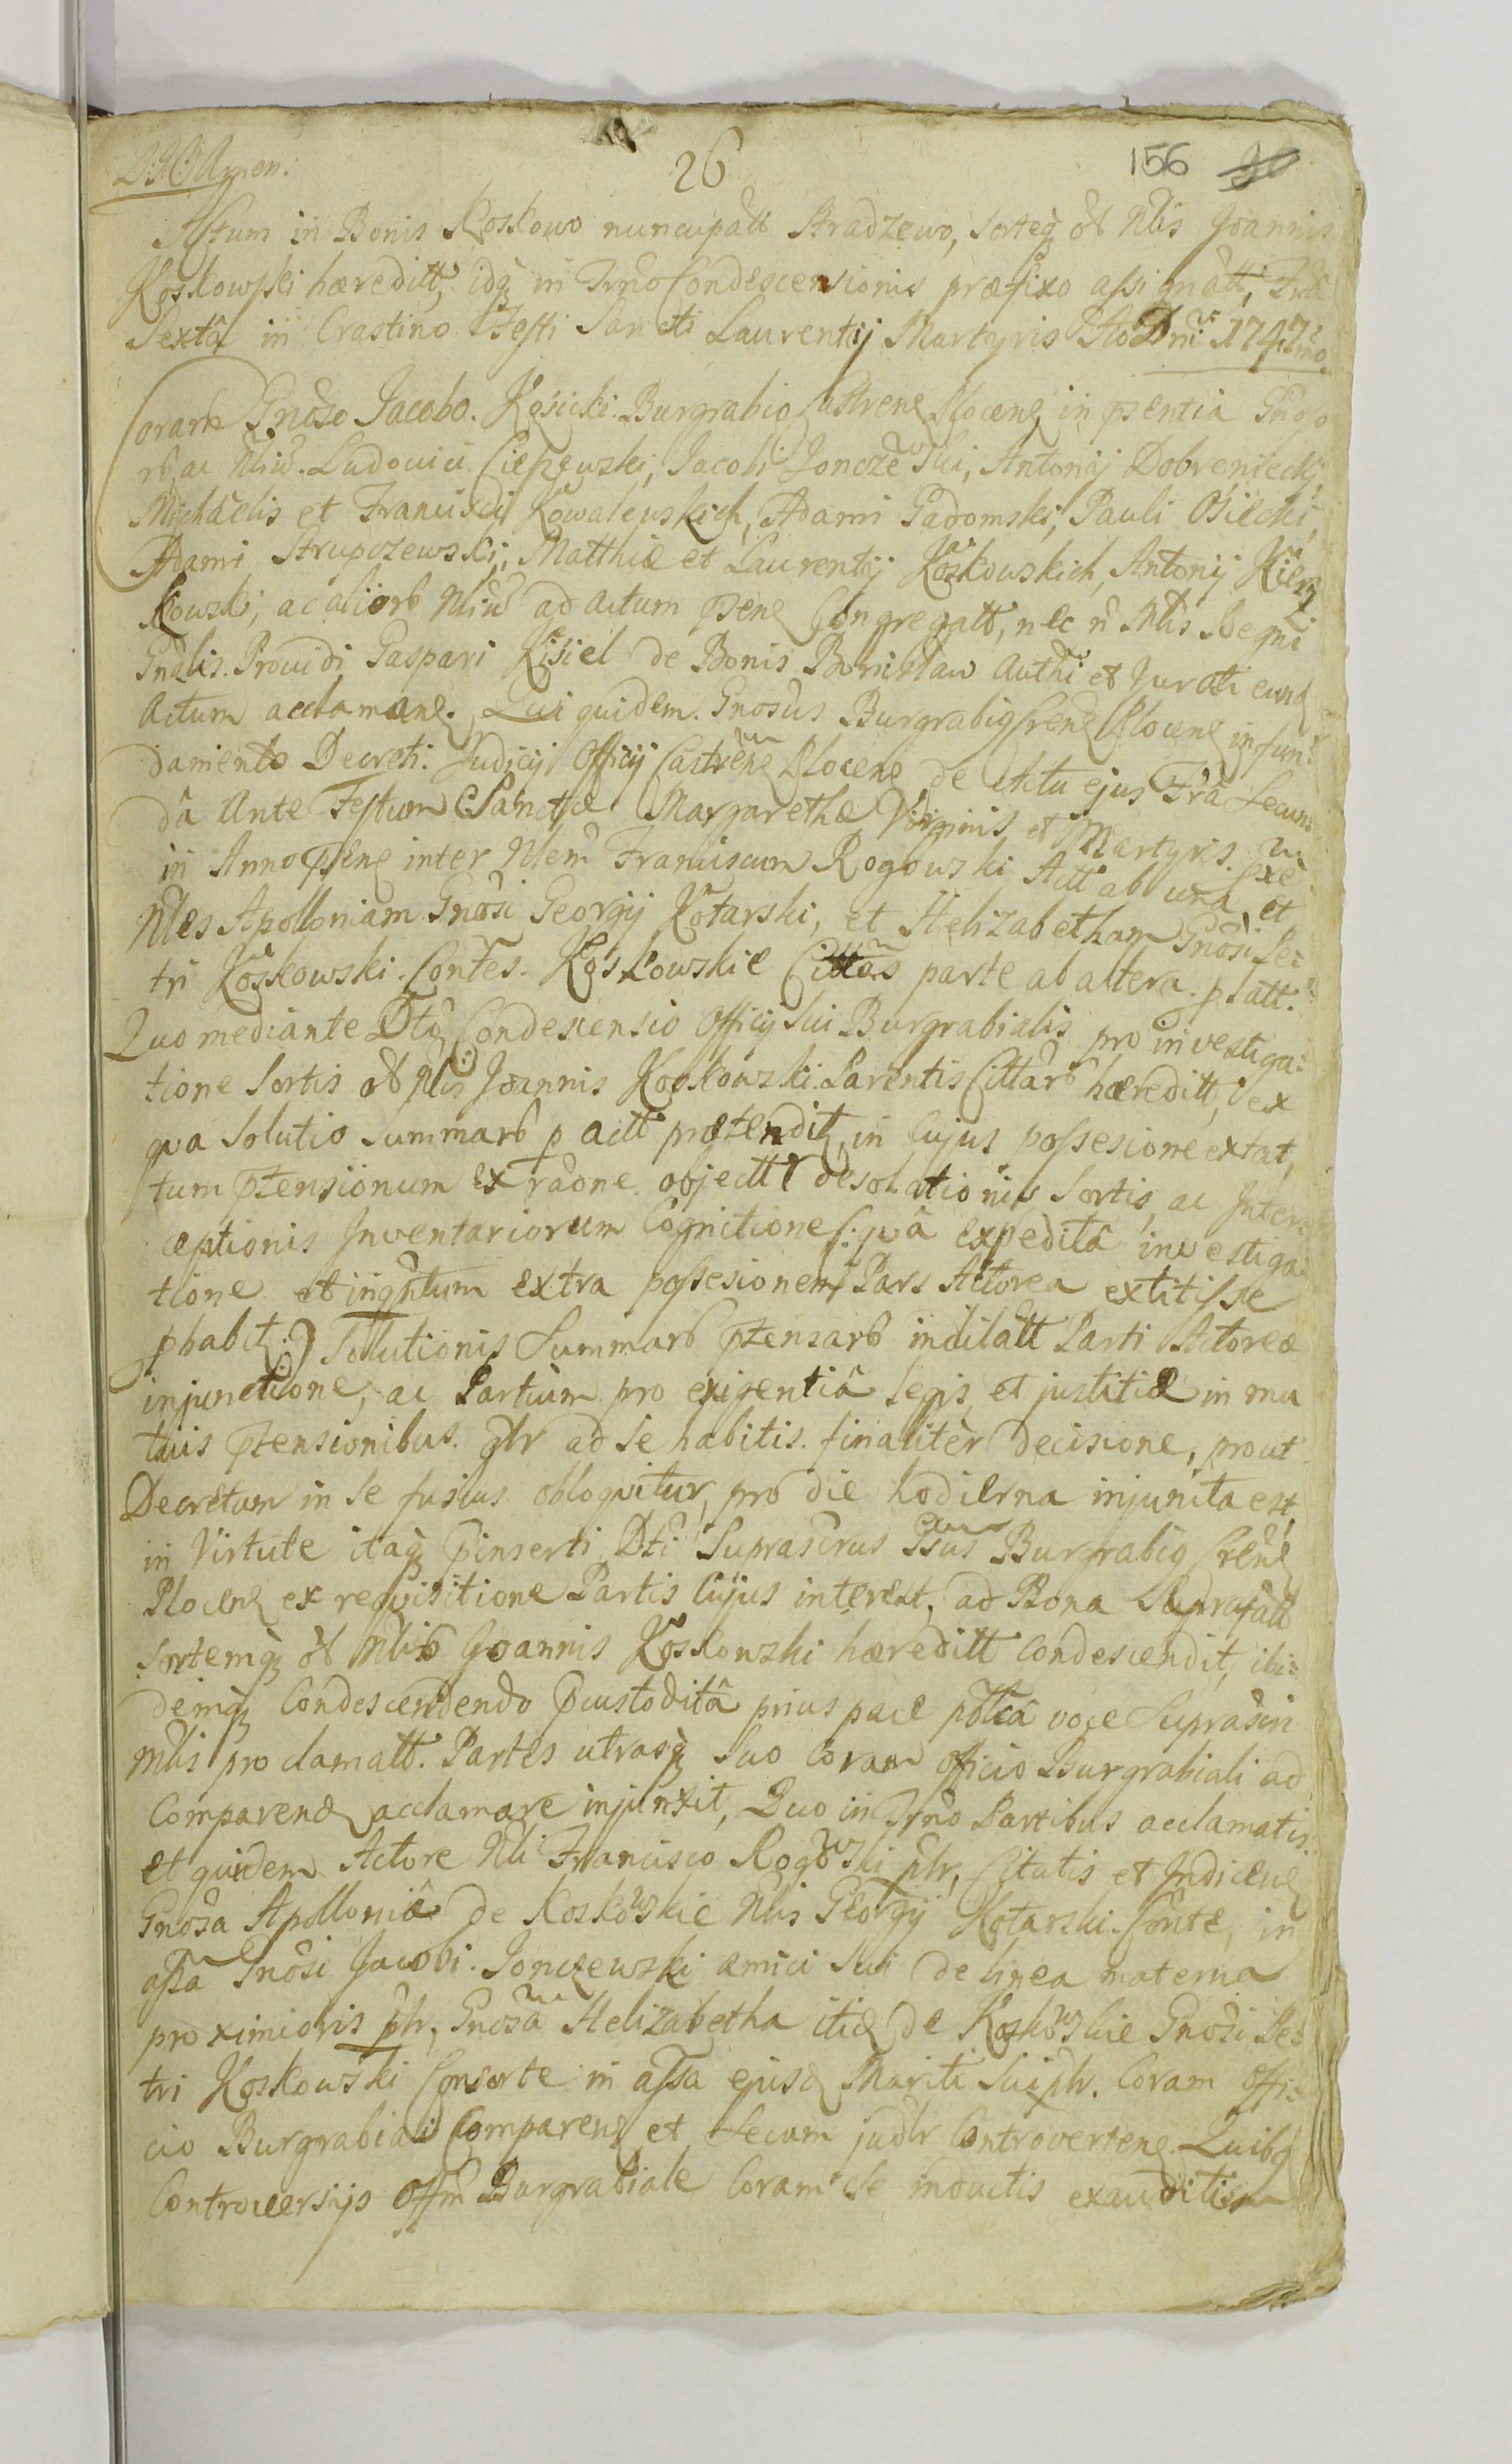 26
156
Actum in Bonis Koskowo nuncupatt Stradzewo, Sorteq̃ ol̃ Nlis Joannis
Koskowski hæreditt, idq̃ in Trño Condescensionis præfixo assignatt, Friâ
Sextâ in Crastino Festi Sancti Laurentij Martyris Ao Dni 1747mo
Coram Gnoso Jacobo Kosicki Burgrabio Castrens Plocens in psentia Gnoso
rb, ac Nliu Ludovici Ciepewski, Jacobi Jonczewski, Antonij Dobreniecki,
Michaelis et Francisci Kowalewskich, Adami Gadomski, Pauli Osiecki,
Adami Strupczewski, Matthiæ et Laurentij Koskowskich, Antonij
kowski, ac aliorb Nliu ad Actum psens Congregatt, nec ñ Mlis Regni
Gnalis Providi Gaspari Kisiel de Bonis authi et Jurati eund
Actum acclamans. Qui quidem Gnosus Burgrabiq Crens Plocens in fun:
damento Decreti Judicij Officij Castrens Plocens de Actu ejus Friâ Secun
dâ Ante Festum Sanctæ Margarethæ Virginis et Martyris
in Anno psens inter Nlem Franciscum Rogowski Actt ab una et
Nles Apolloniam Gnosi Georgij Kotarski, et Helizabetham Gnosi Pe:
tri Koskowski Contes. Koskowskie Cittas parte ab altera platt.
Quo mediante Dto Condescensio Officij Sui Burgrabialis pro investiga:
tione Sortis ol Nlis Joannis Koskowski Parentis Cittarb hæreditt, ex
qua Solutio Summarb p actt prætenditr, in Cujus possesione extat,
tum ptensionum ex raone objectt desolationis Sortis, ac Inter
ceptionis Inventariorum Cognitione (:quâ expeditâ investiga:
tione et inqntum extra possesionem Pars Actorea extitisse
phabitr:) Solutionis Summarb ptensarb indilatt Parti Actoreæ
injunctione, ac Partium pro exigentiâ legis et justitiæ in mu
tuis ptensionibus qlr ad se habitis finaliter decisione, prout
Decretum in se fusius obloquitur, pro die hodierna injuncta est,
in Virtute itaq̃ pinserti Dti Suprascrus Gsus Burgrabiq Crens
Plocens ex requisitione Partis Cujus interest, ad Bona Suprafatt
Sortemq̃ ol Nlis Joannis Koskowski hæreditt Condescendit, ibi:
demq̃ Condescendendo pcustoditâ prius pace pblicâ voce Suprascri
Mlis proclamatt. Partes utrasq̃ Suo Coram officio Burgrabiali ad
Comparend acclamare injunxit, Quo in Trño Partibus acclamatis
et quidem Actore Nli Francisco Rogowski plr, Citatis et Indicens
Gnosa Apolloniâ de Koskowskie Nlis Georgij Kotarski Conte, in
assa Gnosi Jacobi Jonczewski amici Sui de linea materna
proximioris plr, Gnosa Helizabetha itid de Koskowskie Gnosi Pe:
tri Koskowski Consorte in assa ejusd Mariti Sui plr. Coram Offi:
cio Burgrabiali Comparens et Secum judlr Controvertens Quibq
Controversijs Offm Burgrabiale Coram Se inductis exauditis